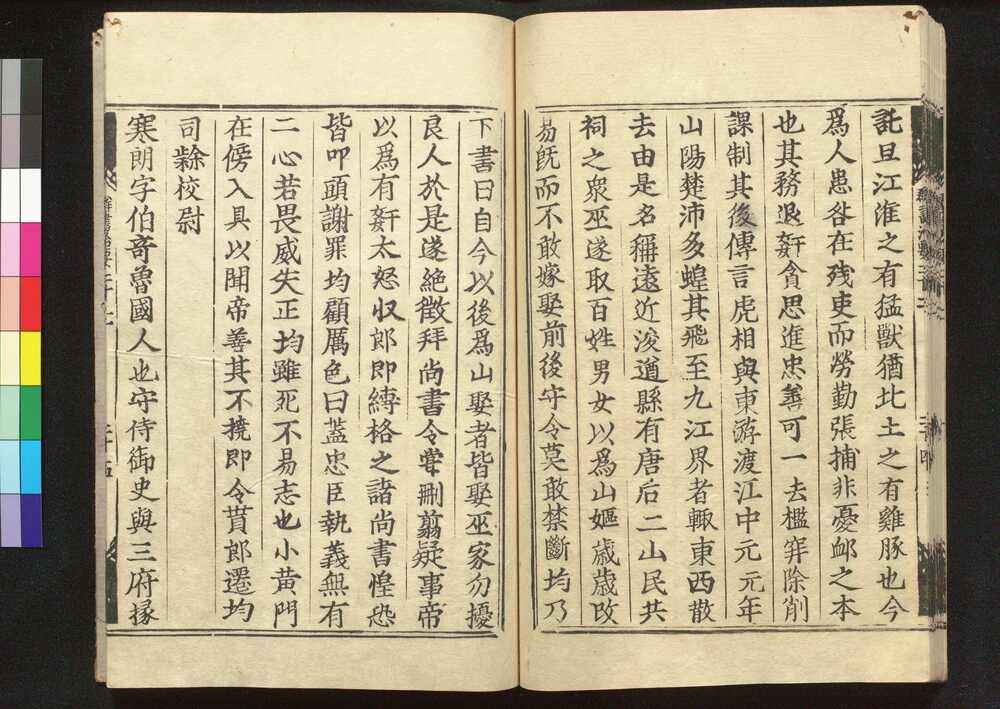 託且江淮之有猛獸猶北土之有雞豚也今
爲人患咎在残吏而勞勤張捕非憂䘏之本
也其務退姧貪思進忠善可一去檻穽除削
課制其後傳言虎相與東游渡江中元元年
山陽楚沛多蝗其飛至九江界者輙東西散
去由是名稱遠近浚遒縣有唐后二山民共
祠之衆巫遂取百姓男女以爲山嫗歳歳改
易旣而不敢嫁娶前後守令莫敢禁斷均乃
下書曰自今以後爲山娶者皆娶巫家勿擾
良人於是遂絶徵拜尚書令甞刪翦疑事帝
以爲有姧大怒収郎即縛格之諸尚書惶恐
皆叩頭謝罪均顧厲色曰蓋忠臣執義無有
二心若畏威失正均雖死不易志也小黄門
在傍入具以聞帝善其不撓即令貰郎遷均
司𨽻校尉
寒朗字伯竒魯國人也守侍御史與三府掾